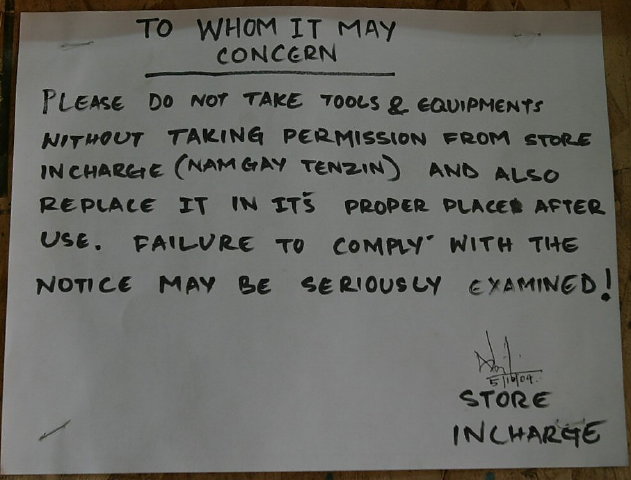 TO WHOM IT MAY
CONCERN
PLEASE DO NOT TAKE TOOLS & EQUIPMENTS
WITHOUT TAKING PERMISSION FROM STORE
INCHARGE (NAMGAY TENZIN) AND ALSO
REPLACE IT IN IT'S PROPER PLACE AFTER
USE. FAILURE TO COMPLY WITH THE
NOTICE MAY BE SERIOUSLY EXAMINED!
STORE
INCHARGE